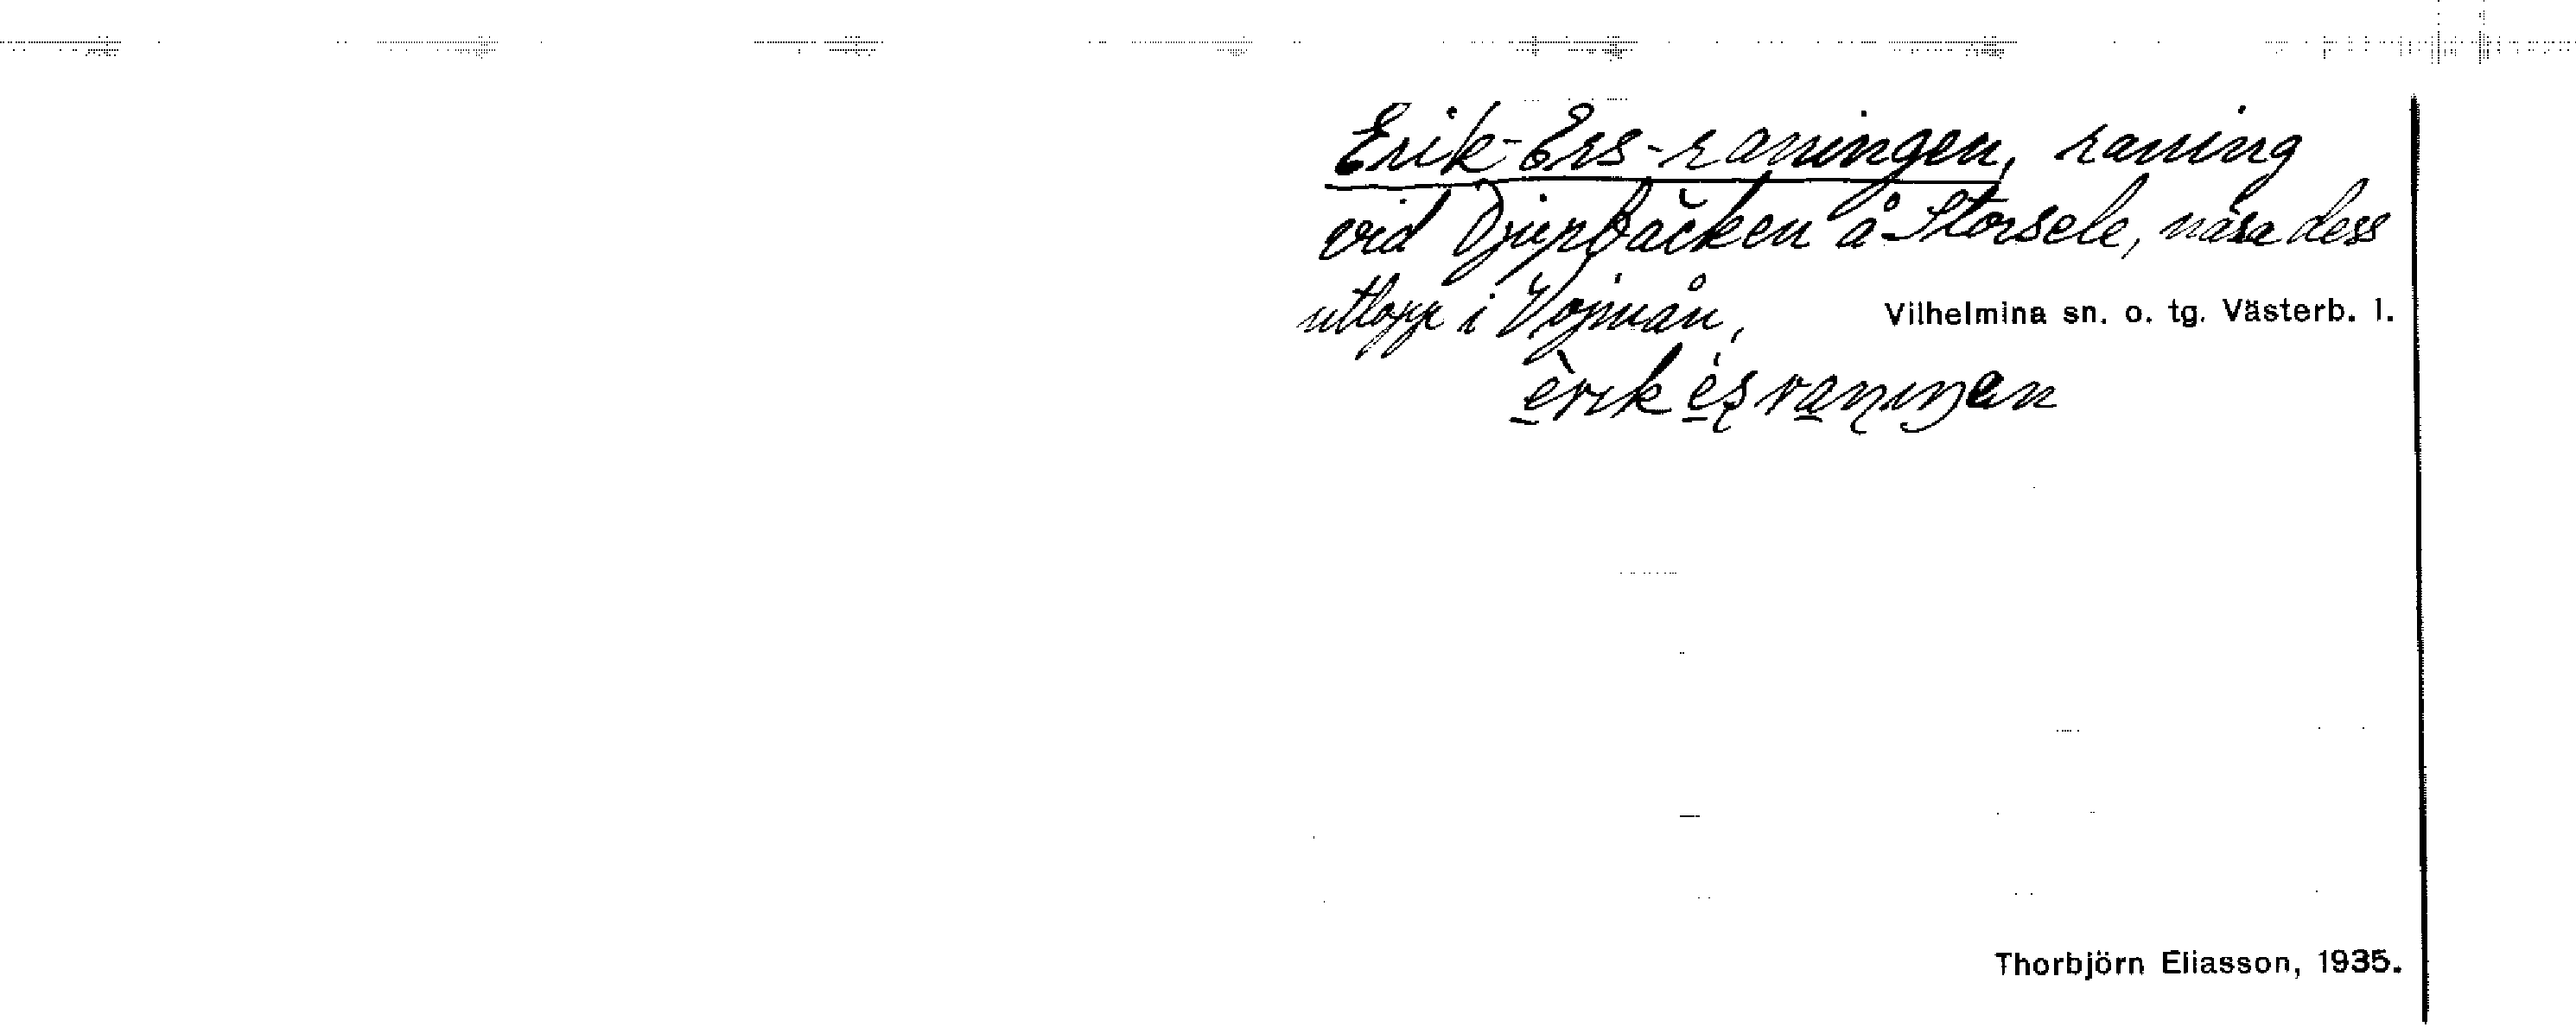 Erik-Ers-raningen, raning
vid Djupbäcken å Storsele, nära dess
utlopp i Vojmån,
Vilhelmina sn. o. tg. Västerb. l.
Thorbjörn Eliasson, 1935.